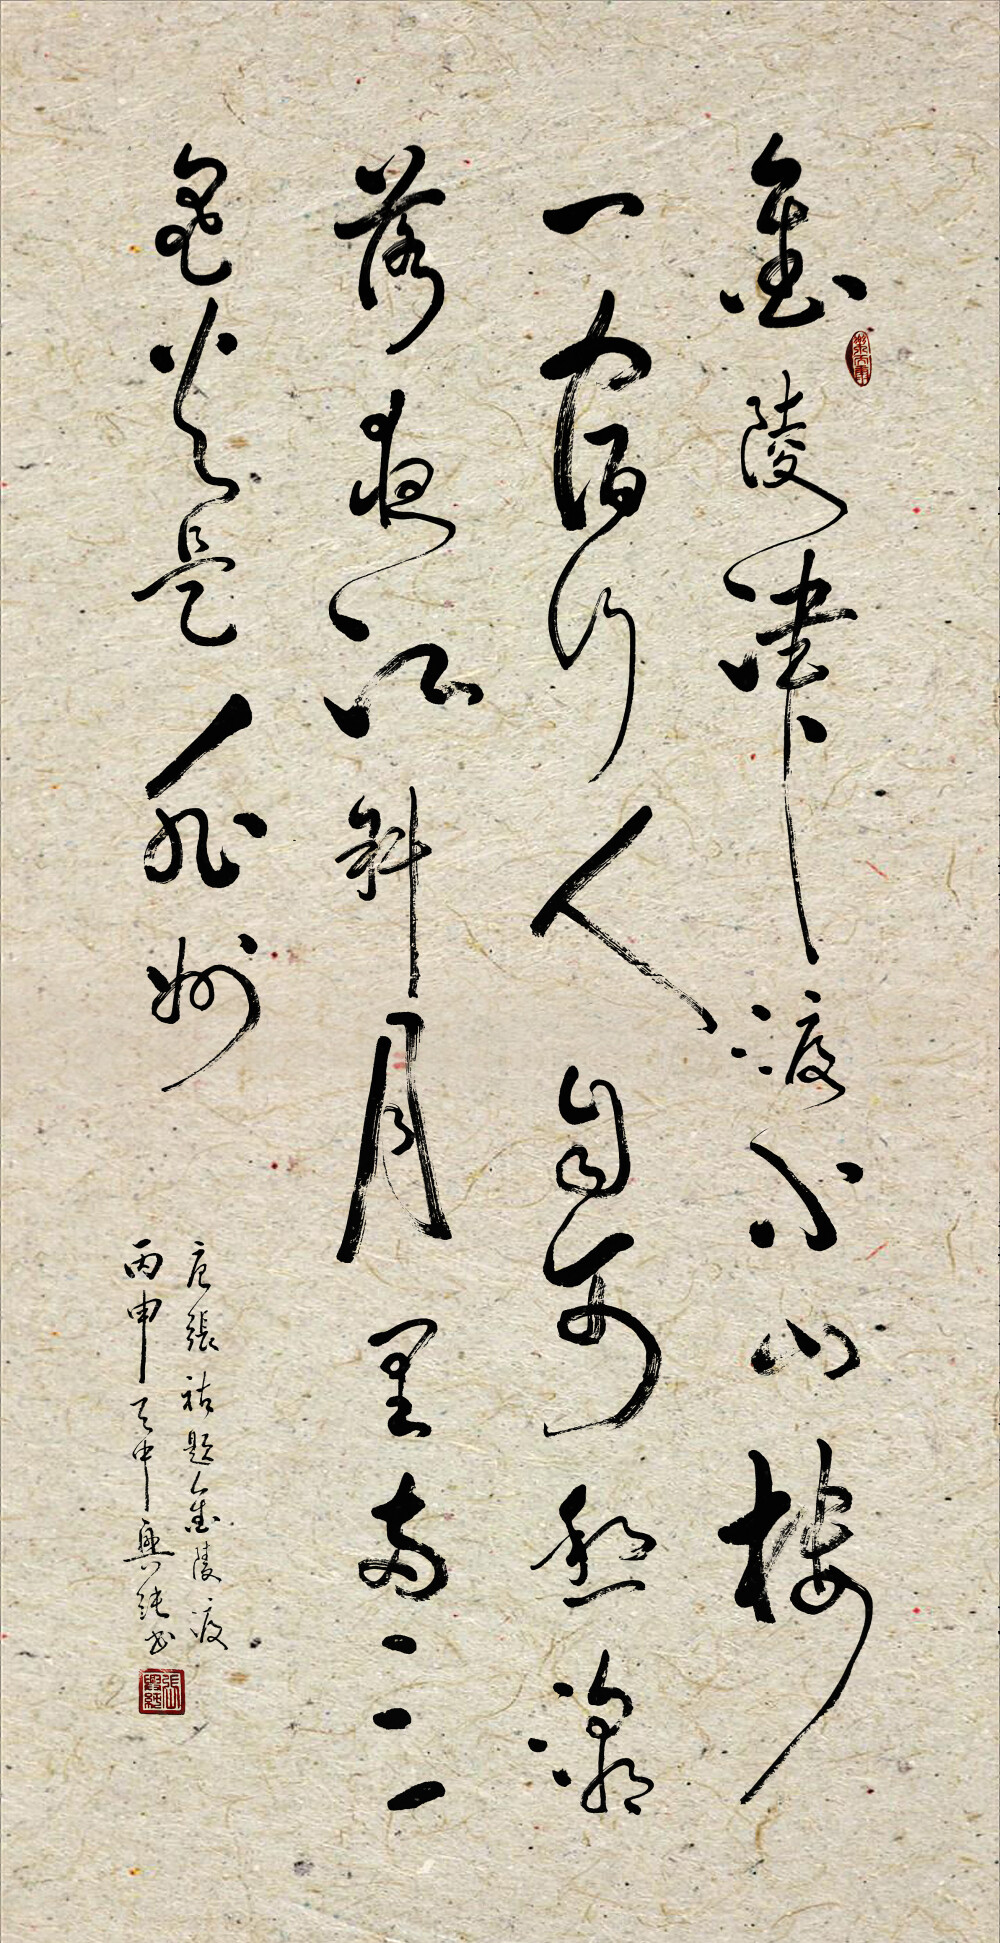 金陵津渡小山樓
一宿行人自可愁潮
落夜江斜月里兩三
星火是瓜州
唐張祜題金陵渡
丙申天中興純书
張興純